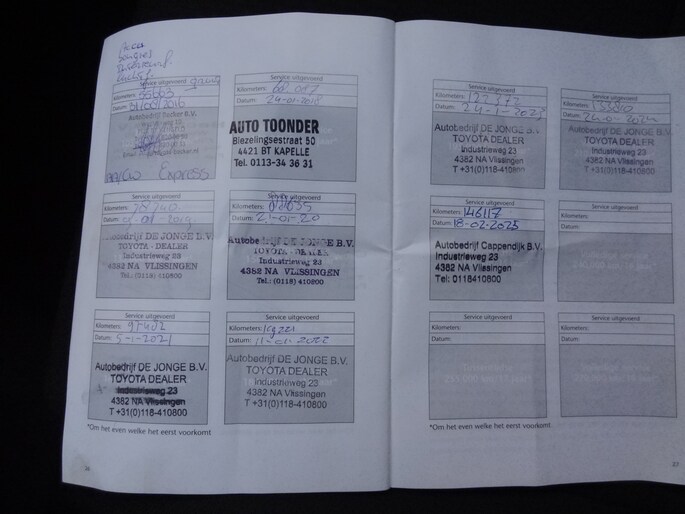 Service uitgevoerd
Kilometers: 55663
Datum: 31/08/2016
Autobedrijf Becker B.V.
Express
Service uitgevoerd
Kilometers:
Datum: 24-01-2018
AUTO TOONDER
Biezelingsestraat 50
4421 BT KAPELLE
Tel. 0113-34 36 31
Service uitgevoerd
Kilometers:
Datum:
Autobedrijf DE JONGE B.V.
TOYOTA - DEALER
Industrieweg 23
4382 NA VLISSINGEN
Tel.: (0118) 410800
Service uitgevoerd
Kilometers:
Datum: 21-01-20
Autobedrijf DE JONGE B.V.
TOYOTA - DEALER
Industrieweg 23
4382 NA VLISSINGEN
Tel.: (0118) 410800
Service uitgevoerd
Kilometers:
Datum: 5-1-2021
Autobedrijf DE JONGE B.V.
TOYOTA DEALER
Industrieweg 23
4382 NA Vlissingen
T +31(0)118-410800
Service uitgevoerd
Kilometers:
Datum: 11-01-2022
Autobedrijf DE JONGE B.V.
TOYOTA DEALER
Industrieweg 23
4382 NA Vlissingen
T +31(0)118-410800
*Om het even welke het eerst voorkomt
36
Service uitgevoerd
Kilometers: 122372
Datum: 24-1-2023
Autobedrijf DE JONGE B.V.
TOYOTA DEALER
Industrieweg 23
4382 NA Vlissingen
T +31(0)118-410800
Service uitgevoerd
Kilometers: 133840
Datum:
Autobedrijf DE JONGE B.V.
TOYOTA DEALER
Industrieweg 23
4382 NA Vlissingen
T +31(0)118-410800
Service uitgevoerd
Kilometers: 146117
Datum: 18-02-2025
Autobedrijf Cappendijk B.V.
Industrieweg 23
4382 NA Vlissingen
Tel: 0118410800
Service uitgevoerd
Kilometers:
Datum:
Service uitgevoerd
Kilometers:
Datum:
Service uitgevoerd
Kilometers:
Datum:
*Om het even welke het eerst voorkomt
37